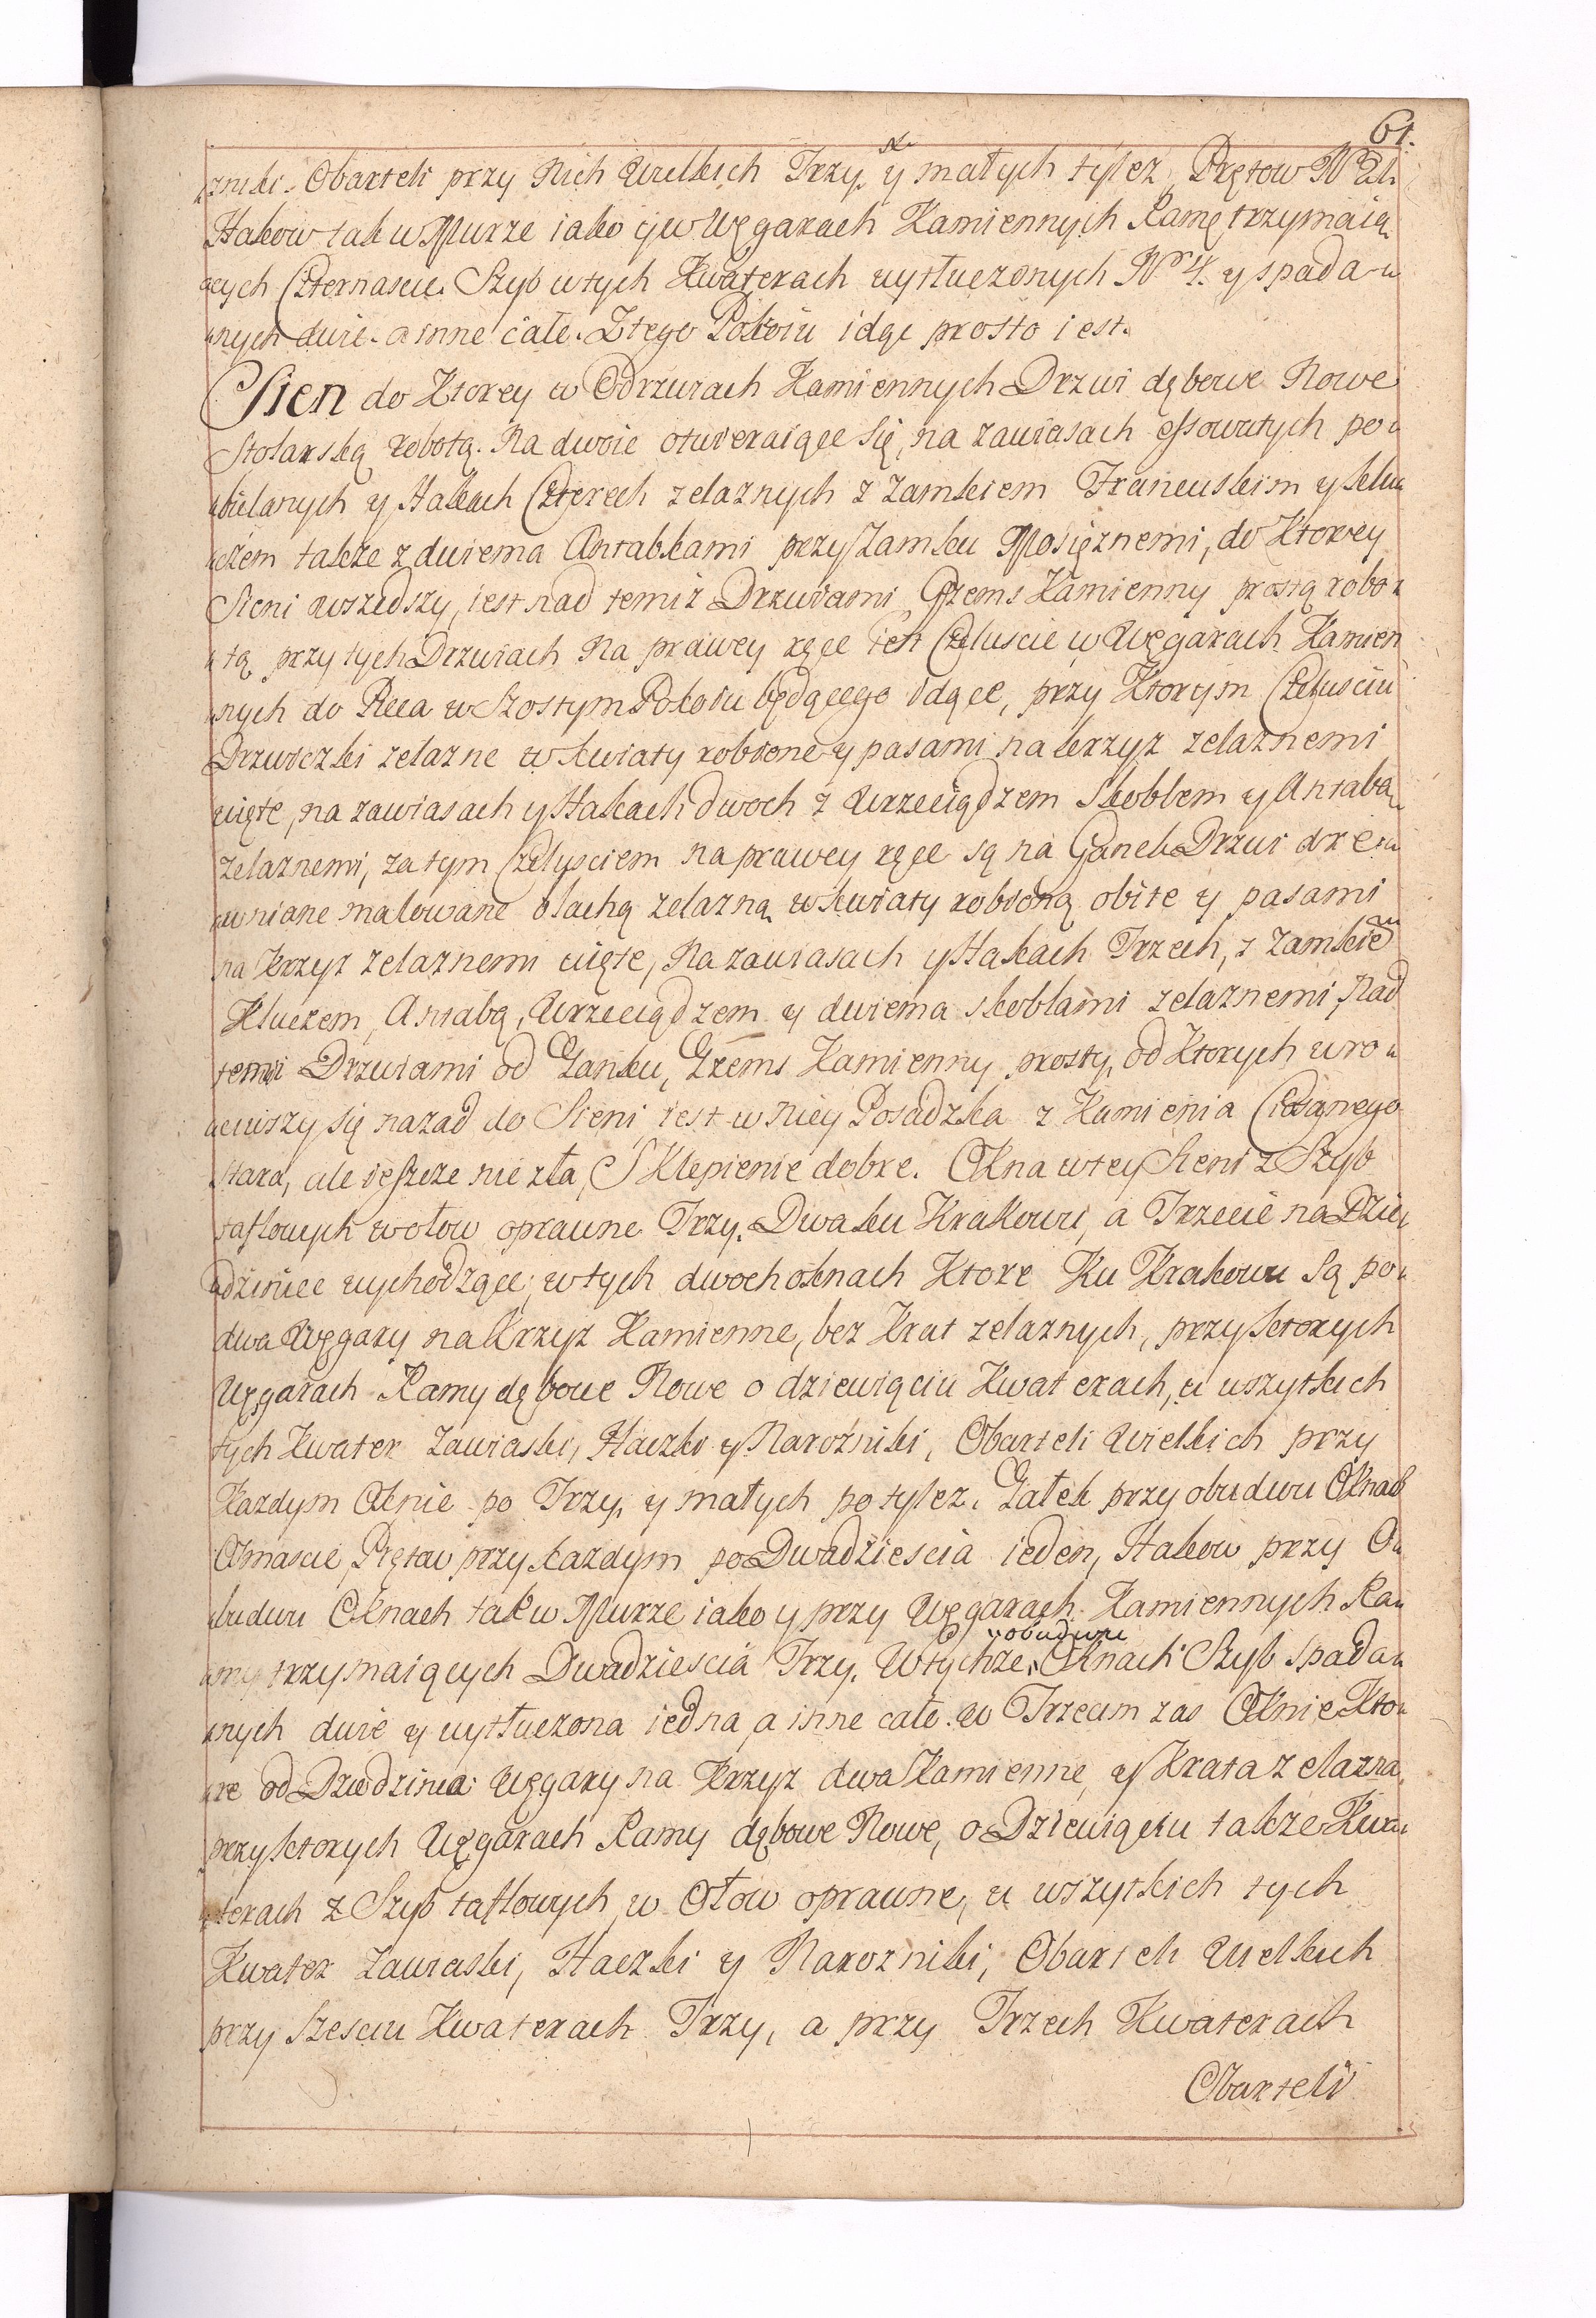 61.
zniki. Obarteli przy Nich Wielkich Trzy, y małych tylez, Prętow Nº 21.
Hakow tak w Murze iako y w Węgarach Kamiennych Ramę trzymaią,
cych Czternascie. Szyb w tych Kwaterach wytłuczonych Nº 4. y spada„
nych dwie. a inne całe. Z tego Pokoiu idąc prosto iest.
Sien do Ktorey w Odrzwiach Kamiennych Drzwi dębowe Nowe
Stolarską robotą. Na dwoie otwieraiące się, na zawiasach essowatych po„
bielanych y Hakach Czterech zelaznych z Zamkiem Francuskim y klu„
czem takze z dwiema Antabkami przy Zamku Mosięznemi, do Ktorey
Sieni wszedszy, iest nad temiz Drzwiami Gzems Kamienny prostą robo„
tą przy tych Drzwiach na prawey ręce iest Czeluscie w Węgarach Kamien„
nych do Pieca w Szostym Pokoiu będącego idące, przy Ktorym Czeluściu
Drzwiczki zelazne w kwiaty robione y pasami na krzyz zelaznemi
cięte, na zawiasach y Hakach dwoch z Wrzeciądzem Skoblem y Antabą
zelaznemi, za tym Czelysciem na prawey ręce są na Ganek Drzwi dre„
wniane malowane blachą zelazną w kwiaty robioną obite y pasami
na Krzyz zelaznemi cięte, Na zawiasach y Hakach Trzech, z Zamkiem
Kluczem, Antabą, Wrzeciądzem y dwiema skoblami zelaznemi, Nad
temi Drzwiami od Ganku, Gzems Kamienny prosty, od Ktorych wro„
ciwszy się nazad do Sieni iest w Niey Posadzka z Kamienia Ciosanego
stara, ale ieszcze nie zła, Sklepienie dobre. Okna w tey Sieni z Szyb
taflowych w ołow oprawne Trzy. Dwa ku Krakowi, a Trzecie na Dzie„
dziniec wychodzące; w tych dwoch oknach Ktore Ku Krakowu są po„
dwa Węgary na Krzyz Kamienne, bez Krat zelaznych, przy ktorych
Węgarach Ramy dębowe Nowe o dziewięciu Kwaterach, u wszytkich
tych Kwater Zawiaski, Haczki y Narożniki, Obarteli Wielkich przy
Kazdym Oknie po Trzy, y małych po tylez. Gałek przy obudwu Oknach
Ośmascie, Prętow przy kazdym po Dwadziescia ieden, Hakow przy O„
budwu Oknach tak w Murze iako y przy Węgarach Kamiennych Ra„
my trzymaiących Dwadziescia Trzy. W tychze obudwu Oknach Szyb spada„
nych dwie y wytłuczona iedna, a inne całe. w Trzecim zas Oknie Kto„
re od Dziedzinca Węgary na Krzyz dwa Kamienne y Krata zelazna,
przy ktorych Węgarach Ramy dębowe Nowe, o Dziewięciu takze Kwa„
terach z Szyb taflowych w Ołow oprawne, u wszytkich tych
Kwater Zawiaski, Haczki y Narozniki, Obarteli Wielkich
przy Szesciu Kwaterach Trzy, a przy Trzech Kwaterach
Obarteli